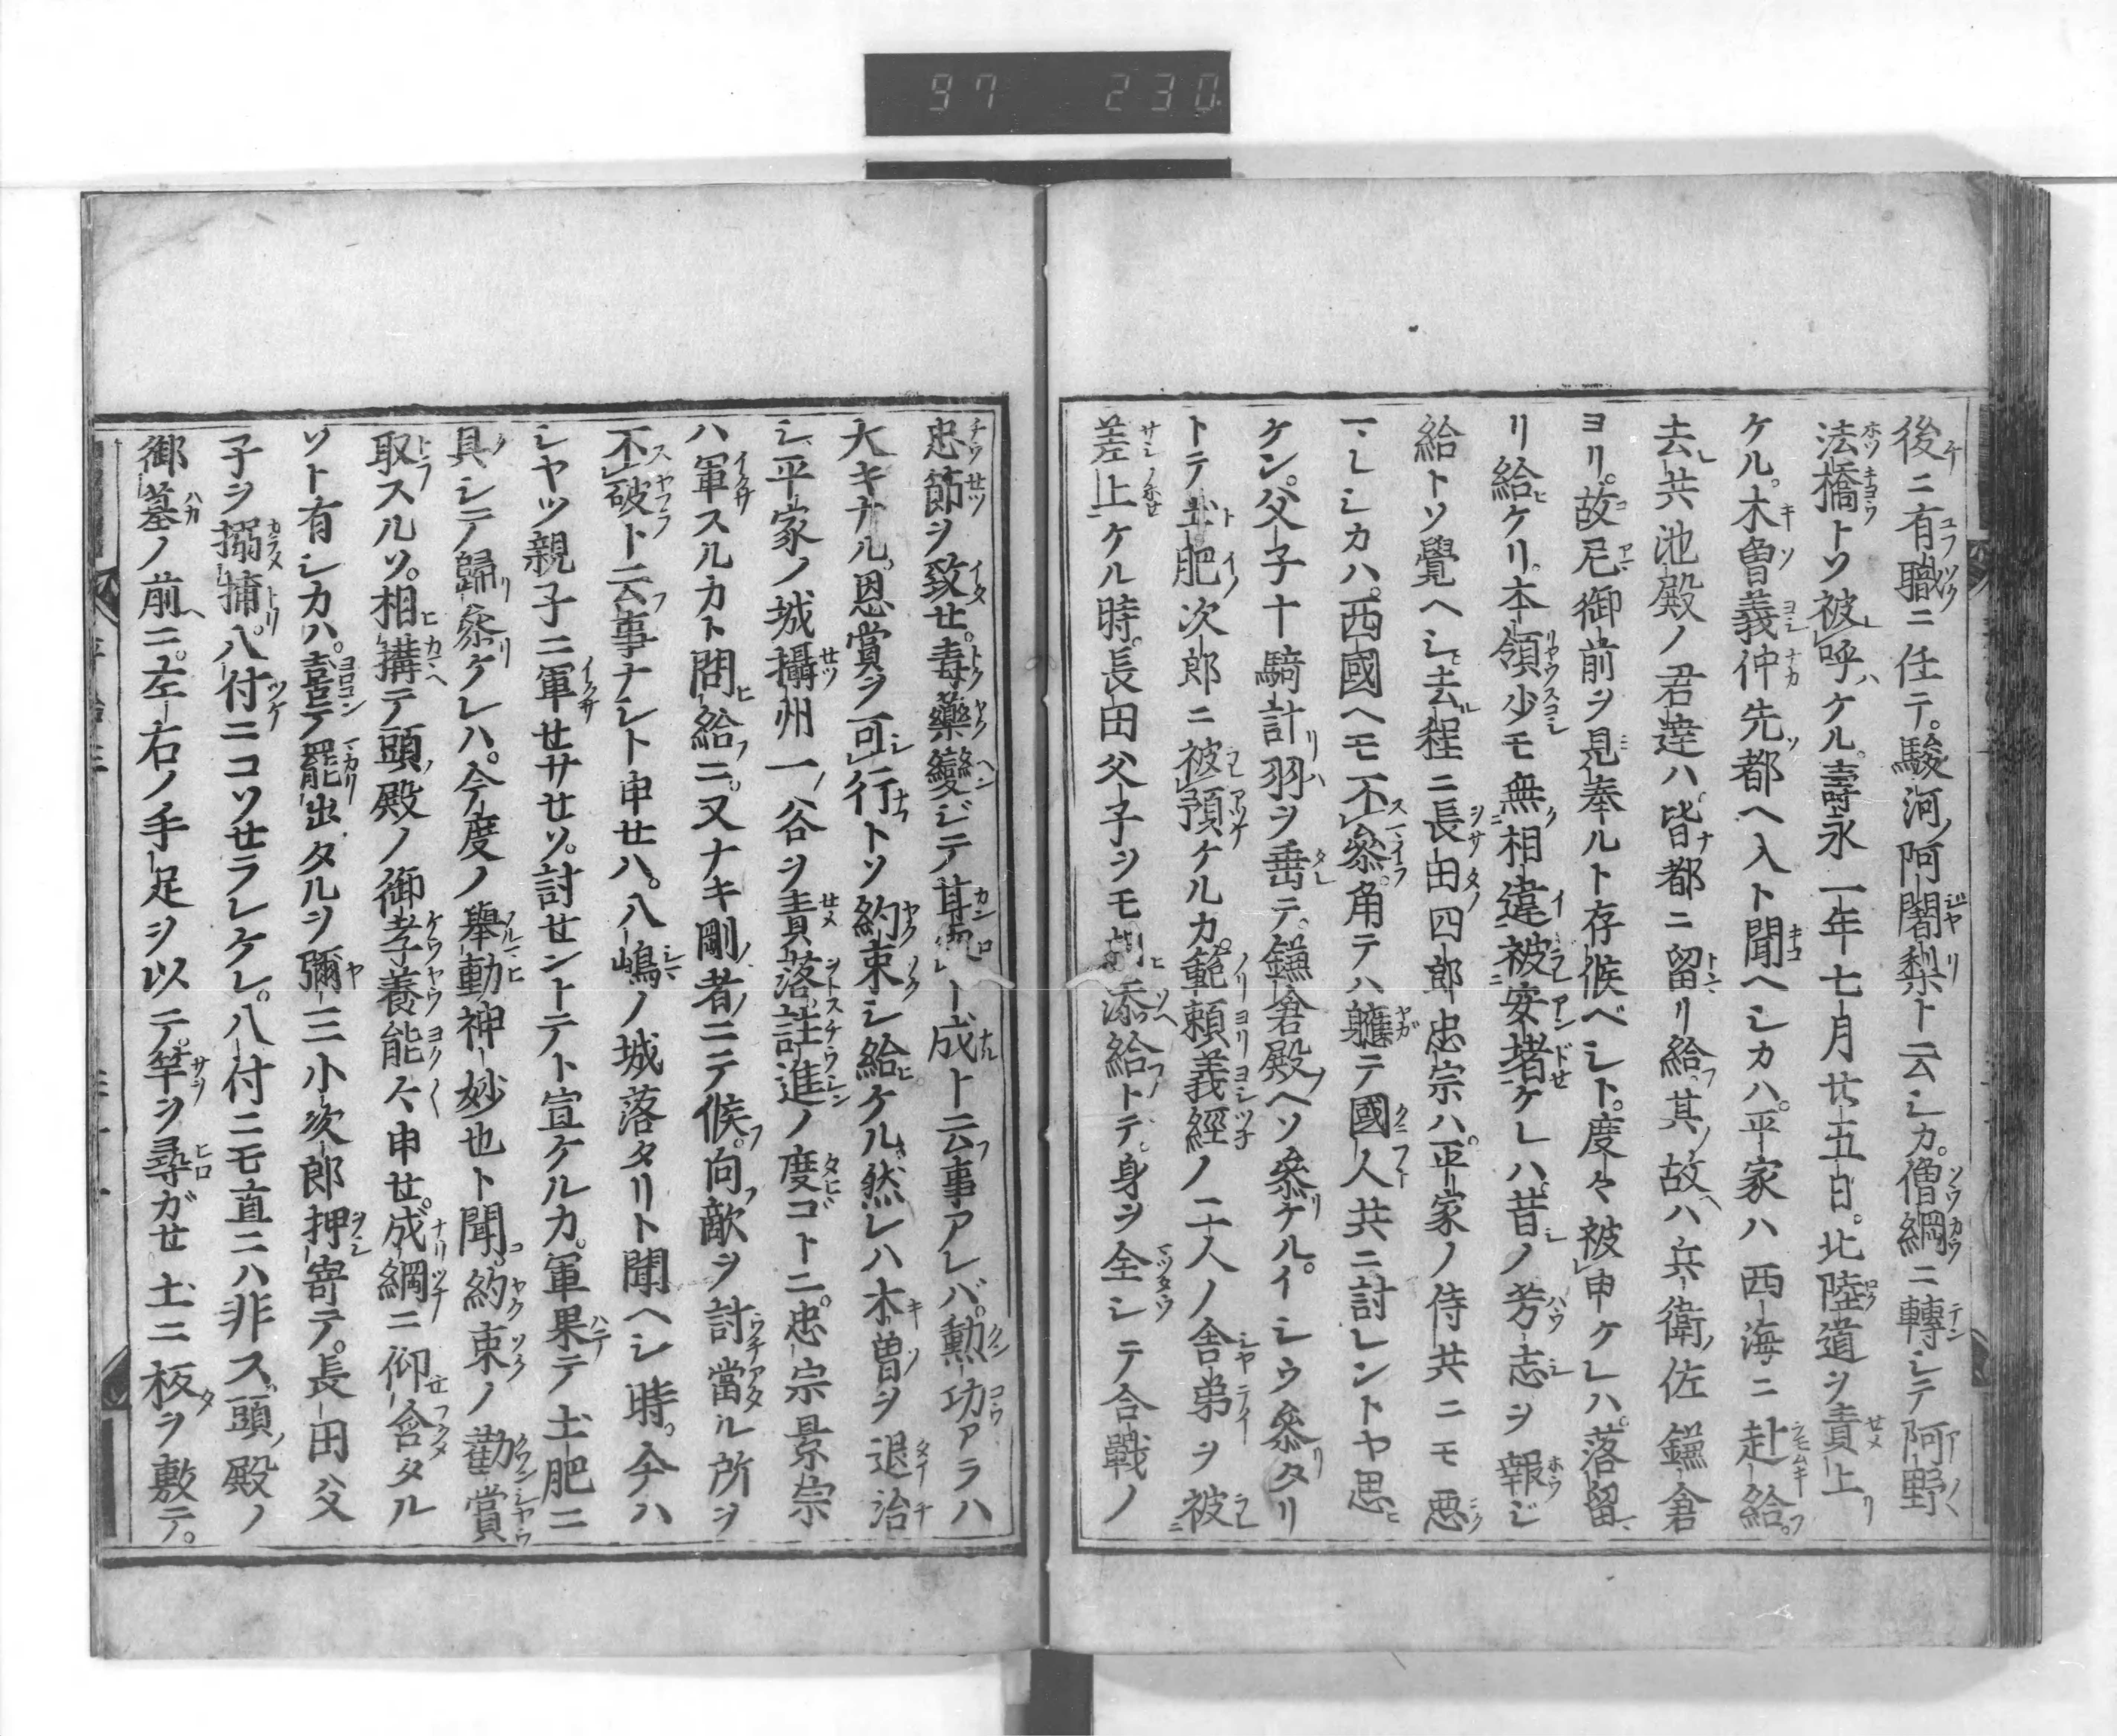 97 230
後ニ有職ニ任テ。駿河ノ阿闍梨ト云シカ。僧綱ニ轉シテ阿野
法橋トソ被呼ケル。壽永一年七月廿五日。北陸道ヲ責上
ケル。木曽義仲先都ヘ入ト聞ヘシカハ。平家ハ西海ニ赴給。
去共池殿ノ君達ハ皆都ニ留リ給其故ハ兵衛佐鎌倉
ヨリ。故尼御前ヲ見奉ルト存候ベシト。度々被申ケレハ。落留
リ給ケリ。本領少モ無相違被安堵ケレハ昔ノ芳志ヲ報ジ
給トソ覺ヘシ去程ニ長田四郎忠宗ハ。平家ノ侍共ニモ悪
マレシカハ。西國ヘモ不參。角テハ軈テ國人共ニ討レントヤ思
ケン。父子十騎計羽ヲ垂テ。鎌倉殿ヘソ參ケル。イシウ參タリ
トテ土肥次郎ニ被預ケルカ。範頼義經ノ二人ノ舎弟ヲ被
差上ケル時。長田父子ヲモ添給トテ。身ヲ全シテ合戰ノ
忠節ヲ致せ。毒藥變ジテ甘ト成ト云事アレバ。勲功アラハ
大キナル恩賞ヲ可行トソ約束シ給ケル然レハ木曽ヲ退治
シ平家ノ城攝州一谷ヲ責落註進ノ度ゴトニ。忠宗景宗
ハ軍スルカト問給ニ。又ナキ剛者ニテ候。向敵ヲ討當ル所ヲ
不破ト云事ナシト申せハ。八嶋ノ城落タリト聞ヘシ時。今ハ
シヤツ親子ニ軍せサせソ。討せントテト宣ケルカ。軍果テ土肥ニ
具シテ歸參ケレハ。今度ノ舉動神妙也ト聞。約束ノ勸賞
取スルソ。相搆テ頭殿ノ御孝養能々申せ。成綱ニ仰含タル
ソト有シカハ。喜テ罷出タルヲ彌三小次郎押寄テ。長田父
子ヲ搦捕。八付ニコソせラレケレ。八付ニモ直ニハ非ス頭殿ノ
御墓ノ前ニ。左右ノ手足ヲ以テ。竿ヲ尋ガせ土ニ板ヲ敷テ。